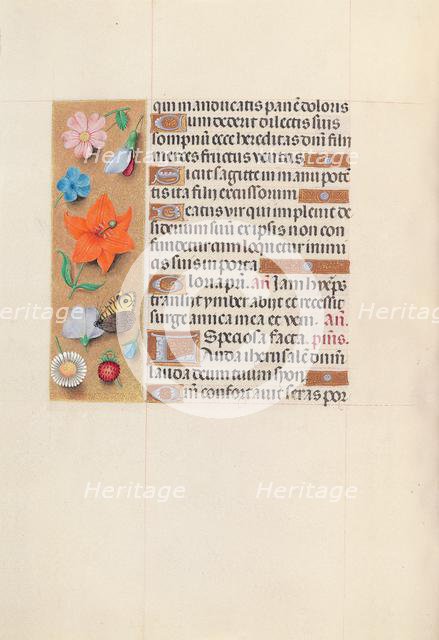 qui manducatis panē doloris
Cum dederit dilectis suis
sompnū ecce hereditas dn̄i filii
merces fructus ventris
Sicut sagitte in manu potē
tis ita filii excussorum
Beatus vir qui impleuit de
siderium suū ex ipsis non con
fundetur cum loquetur inimi
cis suis in porta
Gloria pr̄i. an̄ Iam hyēps
transiit ymber abijt et recessit
surge amica mea et veni. an̄.
Speciosa facta. psm̄s.
Lauda iherusalē dn̄m
lauda deum tuum syon
Qm̄ confortauit seras por
Heritage
Heritage
Heritage
Heritage
Heritage
Heritage